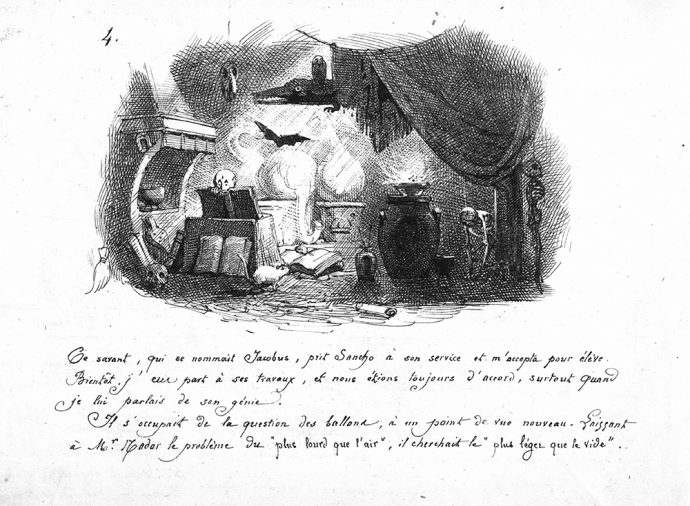 4.
Ce savant, qui se nommait Jacobus, prit Sancho à son service et m'accepta pour élève.
Bientôt j'eus part à ses travaux, et nous étions toujours d'accord, surtout quand
je lui parlais de son génie.
Il s'occupait de la question des ballons, à un point de vue nouveau. Laissant
à Mr. Nadar le problème du "plus lourd que l'air", il cherchait le "plus léger que le vide"..